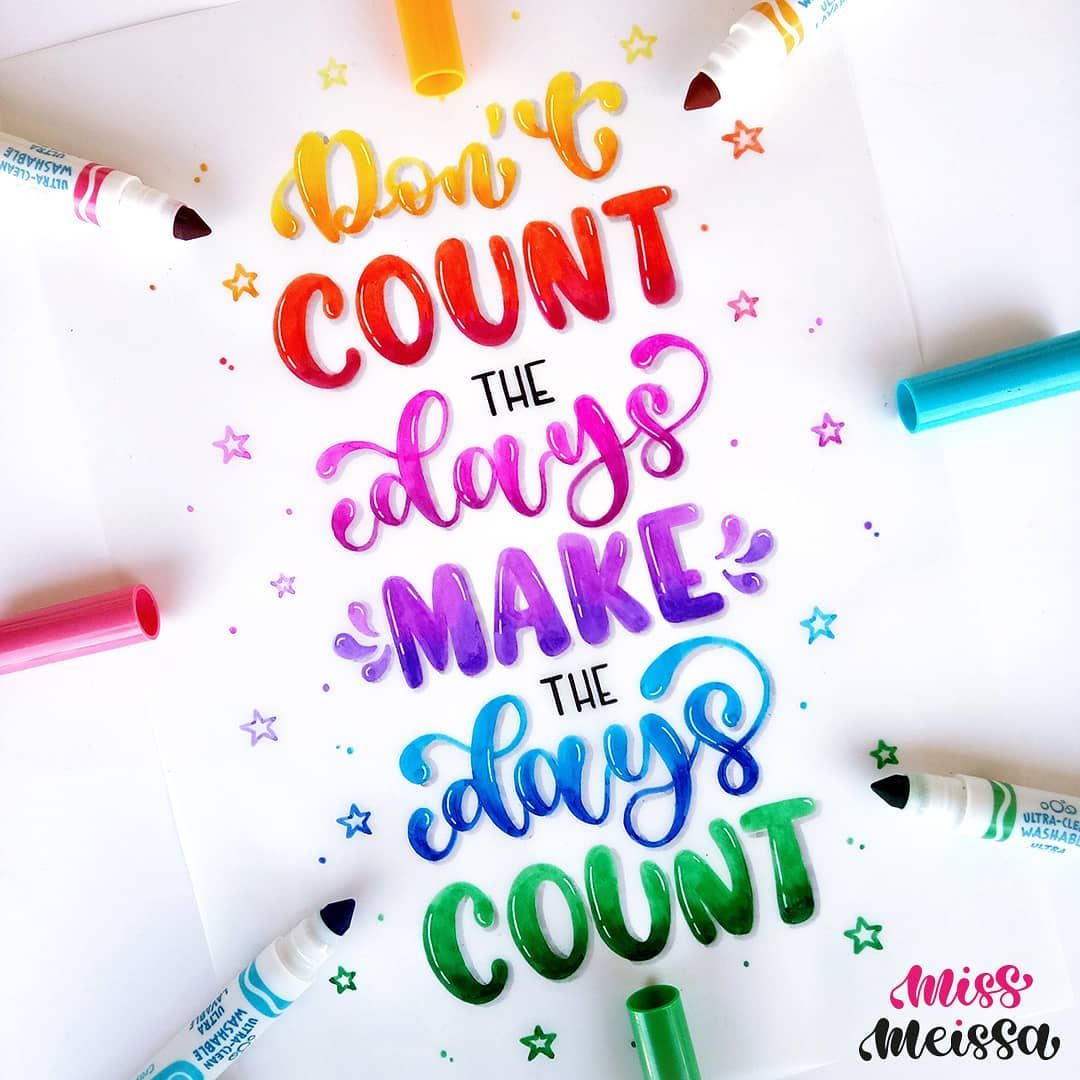 Don't
COUNT
THE
days
MAKE
THE
days
COUNT
ULTRA-CLEAN
WASHABLE
ULTRA
LAVABLE
ULTRA-CLEAN
WASHABLE
ULTRA
LAVABLE
ULTRA-CLE
WASHABL
ULTRA
miss
meissa